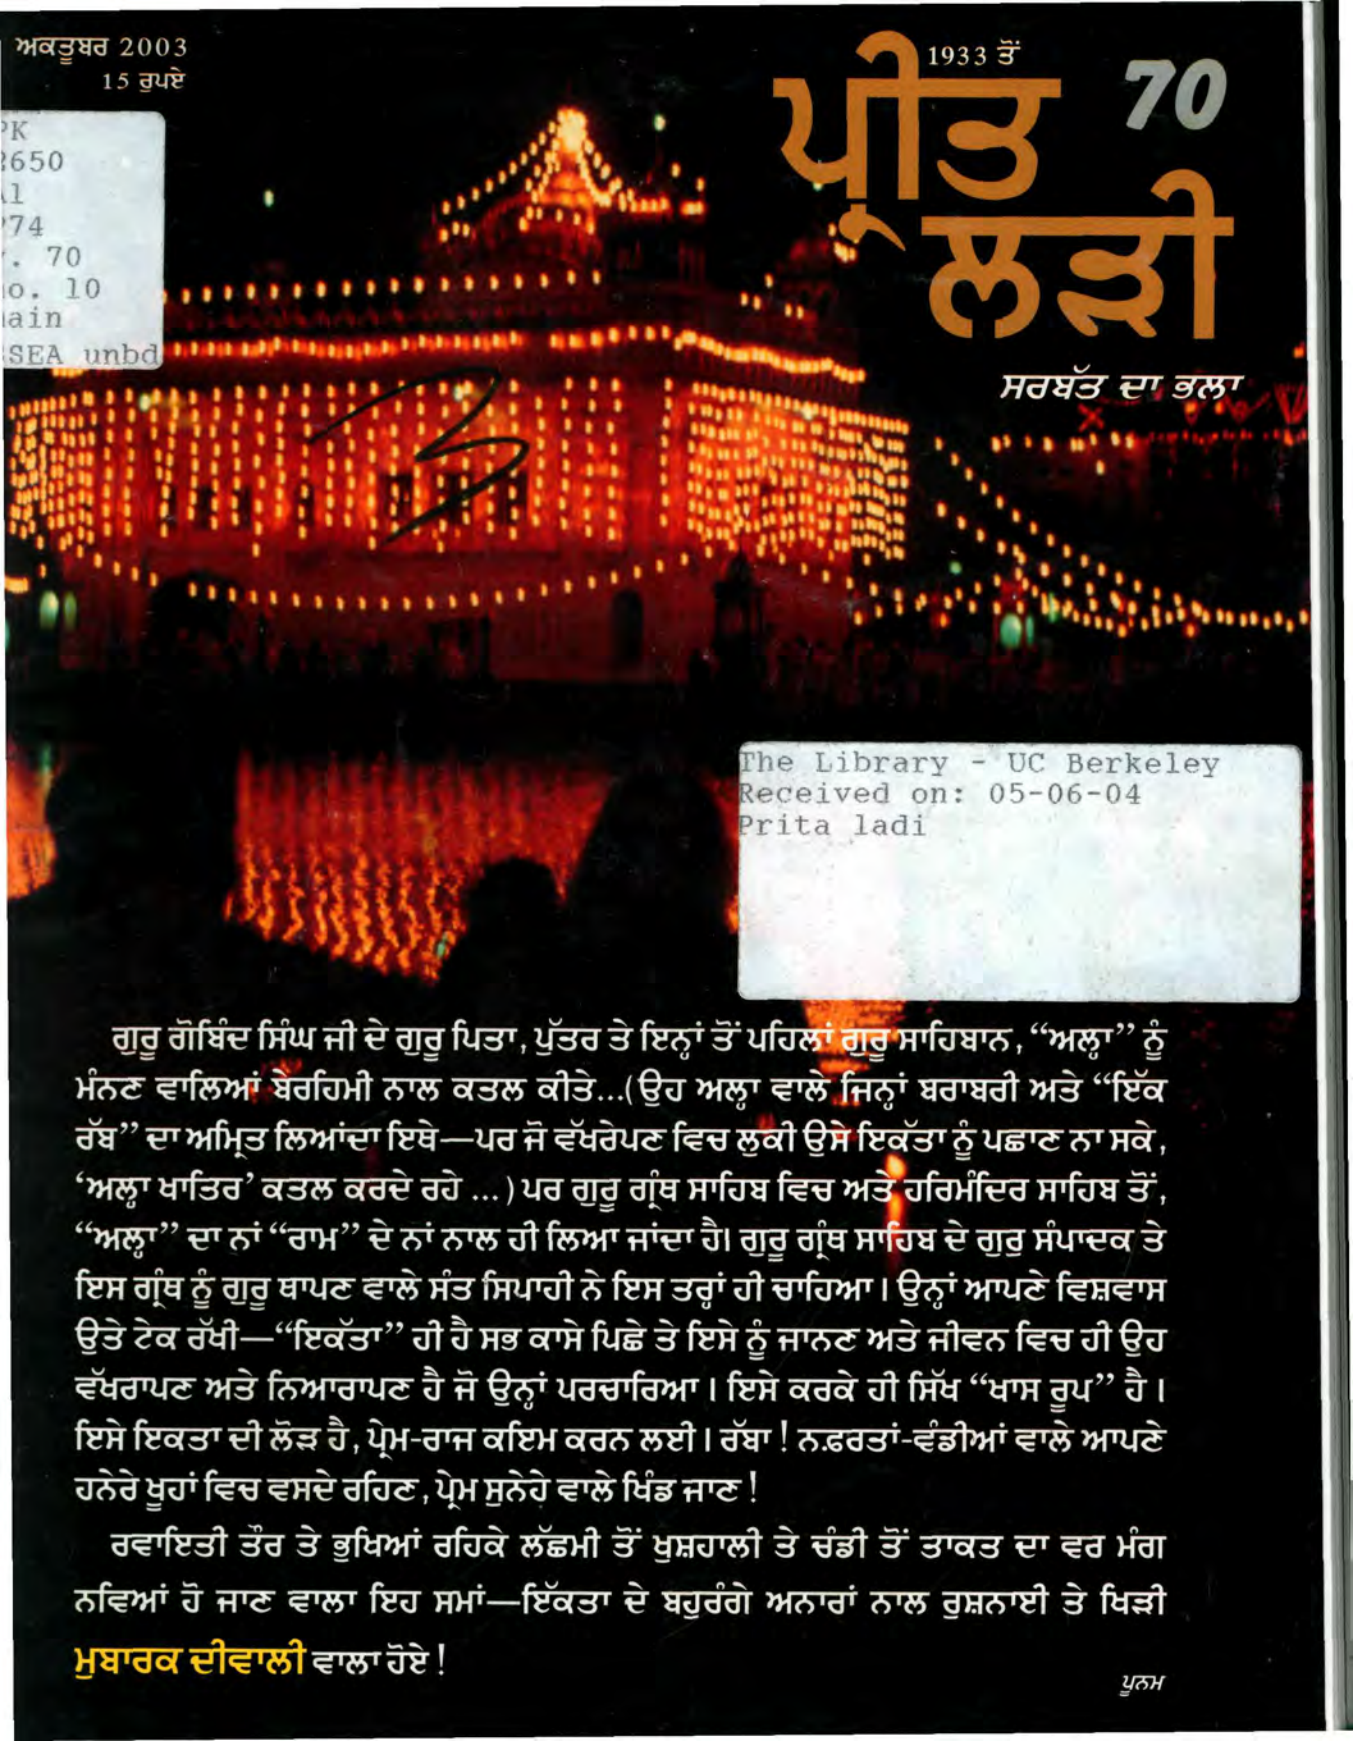 ਅਕਤੂਬਰ 2003
15 ਰੁਪਏ
1933 ਤੋਂ
70
ਪ੍ਰੀਤ
ਲੜੀ
ਸਰਬੱਤ ਦਾ ਭਲਾ
PK
2650
74
. 70
o. 10
ain
SEA unbd
3
The Library - UC Berkeley
Received on: 05-06-04
Prita ladi
ਗੁਰੂ ਗੋਬਿੰਦ ਸਿੰਘ ਜੀ ਦੇ ਗੁਰੂ ਪਿਤਾ, ਪੁੱਤਰ ਤੇ ਇਨ੍ਹਾਂ ਤੋਂ ਪਹਿਲਾਂ ਗੁਰੂ ਸਾਹਿਬਾਨ, “ਅਲ੍ਹਾ” ਨੂੰ
ਮੰਨਣ ਵਾਲਿਆਂ ਬੇਰਹਿਮੀ ਨਾਲ ਕਤਲ ਕੀਤੇ...(ਉਹ ਅਲ੍ਹਾ ਵਾਲੇ ਜਿਨ੍ਹਾਂ ਬਰਾਬਰੀ ਅਤੇ “ਇੱਕ
ਰੱਬ” ਦਾ ਅਮ੍ਰਿਤ ਲਿਆਂਦਾ ਇਥੇ—ਪਰ ਜੋ ਵੱਖਰੇਪਣ ਵਿਚ ਲੁਕੀ ਉਸੇ ਇਕੱਤਾ ਨੂੰ ਪਛਾਣ ਨਾ ਸਕੇ,
‘ਅਲ੍ਹਾ ਖਾਤਿਰ’ ਕਤਲ ਕਰਦੇ ਰਹੇ ...) ਪਰ ਗੁਰੂ ਗ੍ਰੰਥ ਸਾਹਿਬ ਵਿਚ ਅਤੇ ਹਰਿਮੰਦਿਰ ਸਾਹਿਬ ਤੋਂ,
“ਅਲ੍ਹਾ” ਦਾ ਨਾਂ “ਰਾਮ” ਦੇ ਨਾਂ ਨਾਲ ਹੀ ਲਿਆ ਜਾਂਦਾ ਹੈ। ਗੁਰੂ ਗ੍ਰੰਥ ਸਾਹਿਬ ਦੇ ਗੁਰੁ ਸੰਪਾਦਕ ਤੇ
ਇਸ ਗ੍ਰੰਥ ਨੂੰ ਗੁਰੂ ਥਾਪਣ ਵਾਲੇ ਸੰਤ ਸਿਪਾਹੀ ਨੇ ਇਸ ਤਰ੍ਹਾਂ ਹੀ ਚਾਹਿਆ। ਉਨ੍ਹਾਂ ਆਪਣੇ ਵਿਸ਼ਵਾਸ
ਉਤੇ ਟੇਕ ਰੱਖੀ—“ਇਕੱਤਾ” ਹੀ ਹੈ ਸਭ ਕਾਸੇ ਪਿਛੇ ਤੇ ਇਸੇ ਨੂੰ ਜਾਨਣ ਅਤੇ ਜੀਵਨ ਵਿਚ ਹੀ ਉਹ
ਵੱਖਰਾਪਣ ਅਤੇ ਨਿਆਰਾਪਣ ਹੈ ਜੋ ਉਨ੍ਹਾਂ ਪਰਚਾਰਿਆ। ਇਸੇ ਕਰਕੇ ਹੀ ਸਿੱਖ “ਖਾਸ ਰੂਪ” ਹੈ।
ਇਸੇ ਇਕਤਾ ਦੀ ਲੋੜ ਹੈ, ਪ੍ਰੇਮ-ਰਾਜ ਕਇਮ ਕਰਨ ਲਈ। ਰੱਬਾ! ਨਫ਼ਰਤਾਂ-ਵੰਡੀਆਂ ਵਾਲੇ ਆਪਣੇ
ਹਨੇਰੇ ਖੂਹਾਂ ਵਿਚ ਵਸਦੇ ਰਹਿਣ, ਪ੍ਰੇਮ ਸੁਨੇਹੇ ਵਾਲੇ ਖਿੰਡ ਜਾਣ!
ਰਵਾਇਤੀ ਤੌਰ ਤੇ ਭੁਖਿਆਂ ਰਹਿਕੇ ਲੱਛਮੀ ਤੋਂ ਖੁਸ਼ਹਾਲੀ ਤੇ ਚੰਡੀ ਤੋਂ ਤਾਕਤ ਦਾ ਵਰ ਮੰਗ
ਨਵਿਆਂ ਹੋ ਜਾਣ ਵਾਲਾ ਇਹ ਸਮਾਂ—ਇੱਕਤਾ ਦੇ ਬਹੁਰੰਗੇ ਅਨਾਰਾਂ ਨਾਲ ਰੁਸ਼ਨਾਈ ਤੇ ਖਿੜੀ
ਮੁਬਾਰਕ ਦੀਵਾਲੀ ਵਾਲਾ ਹੋਏ!
ਪੂਨਮ